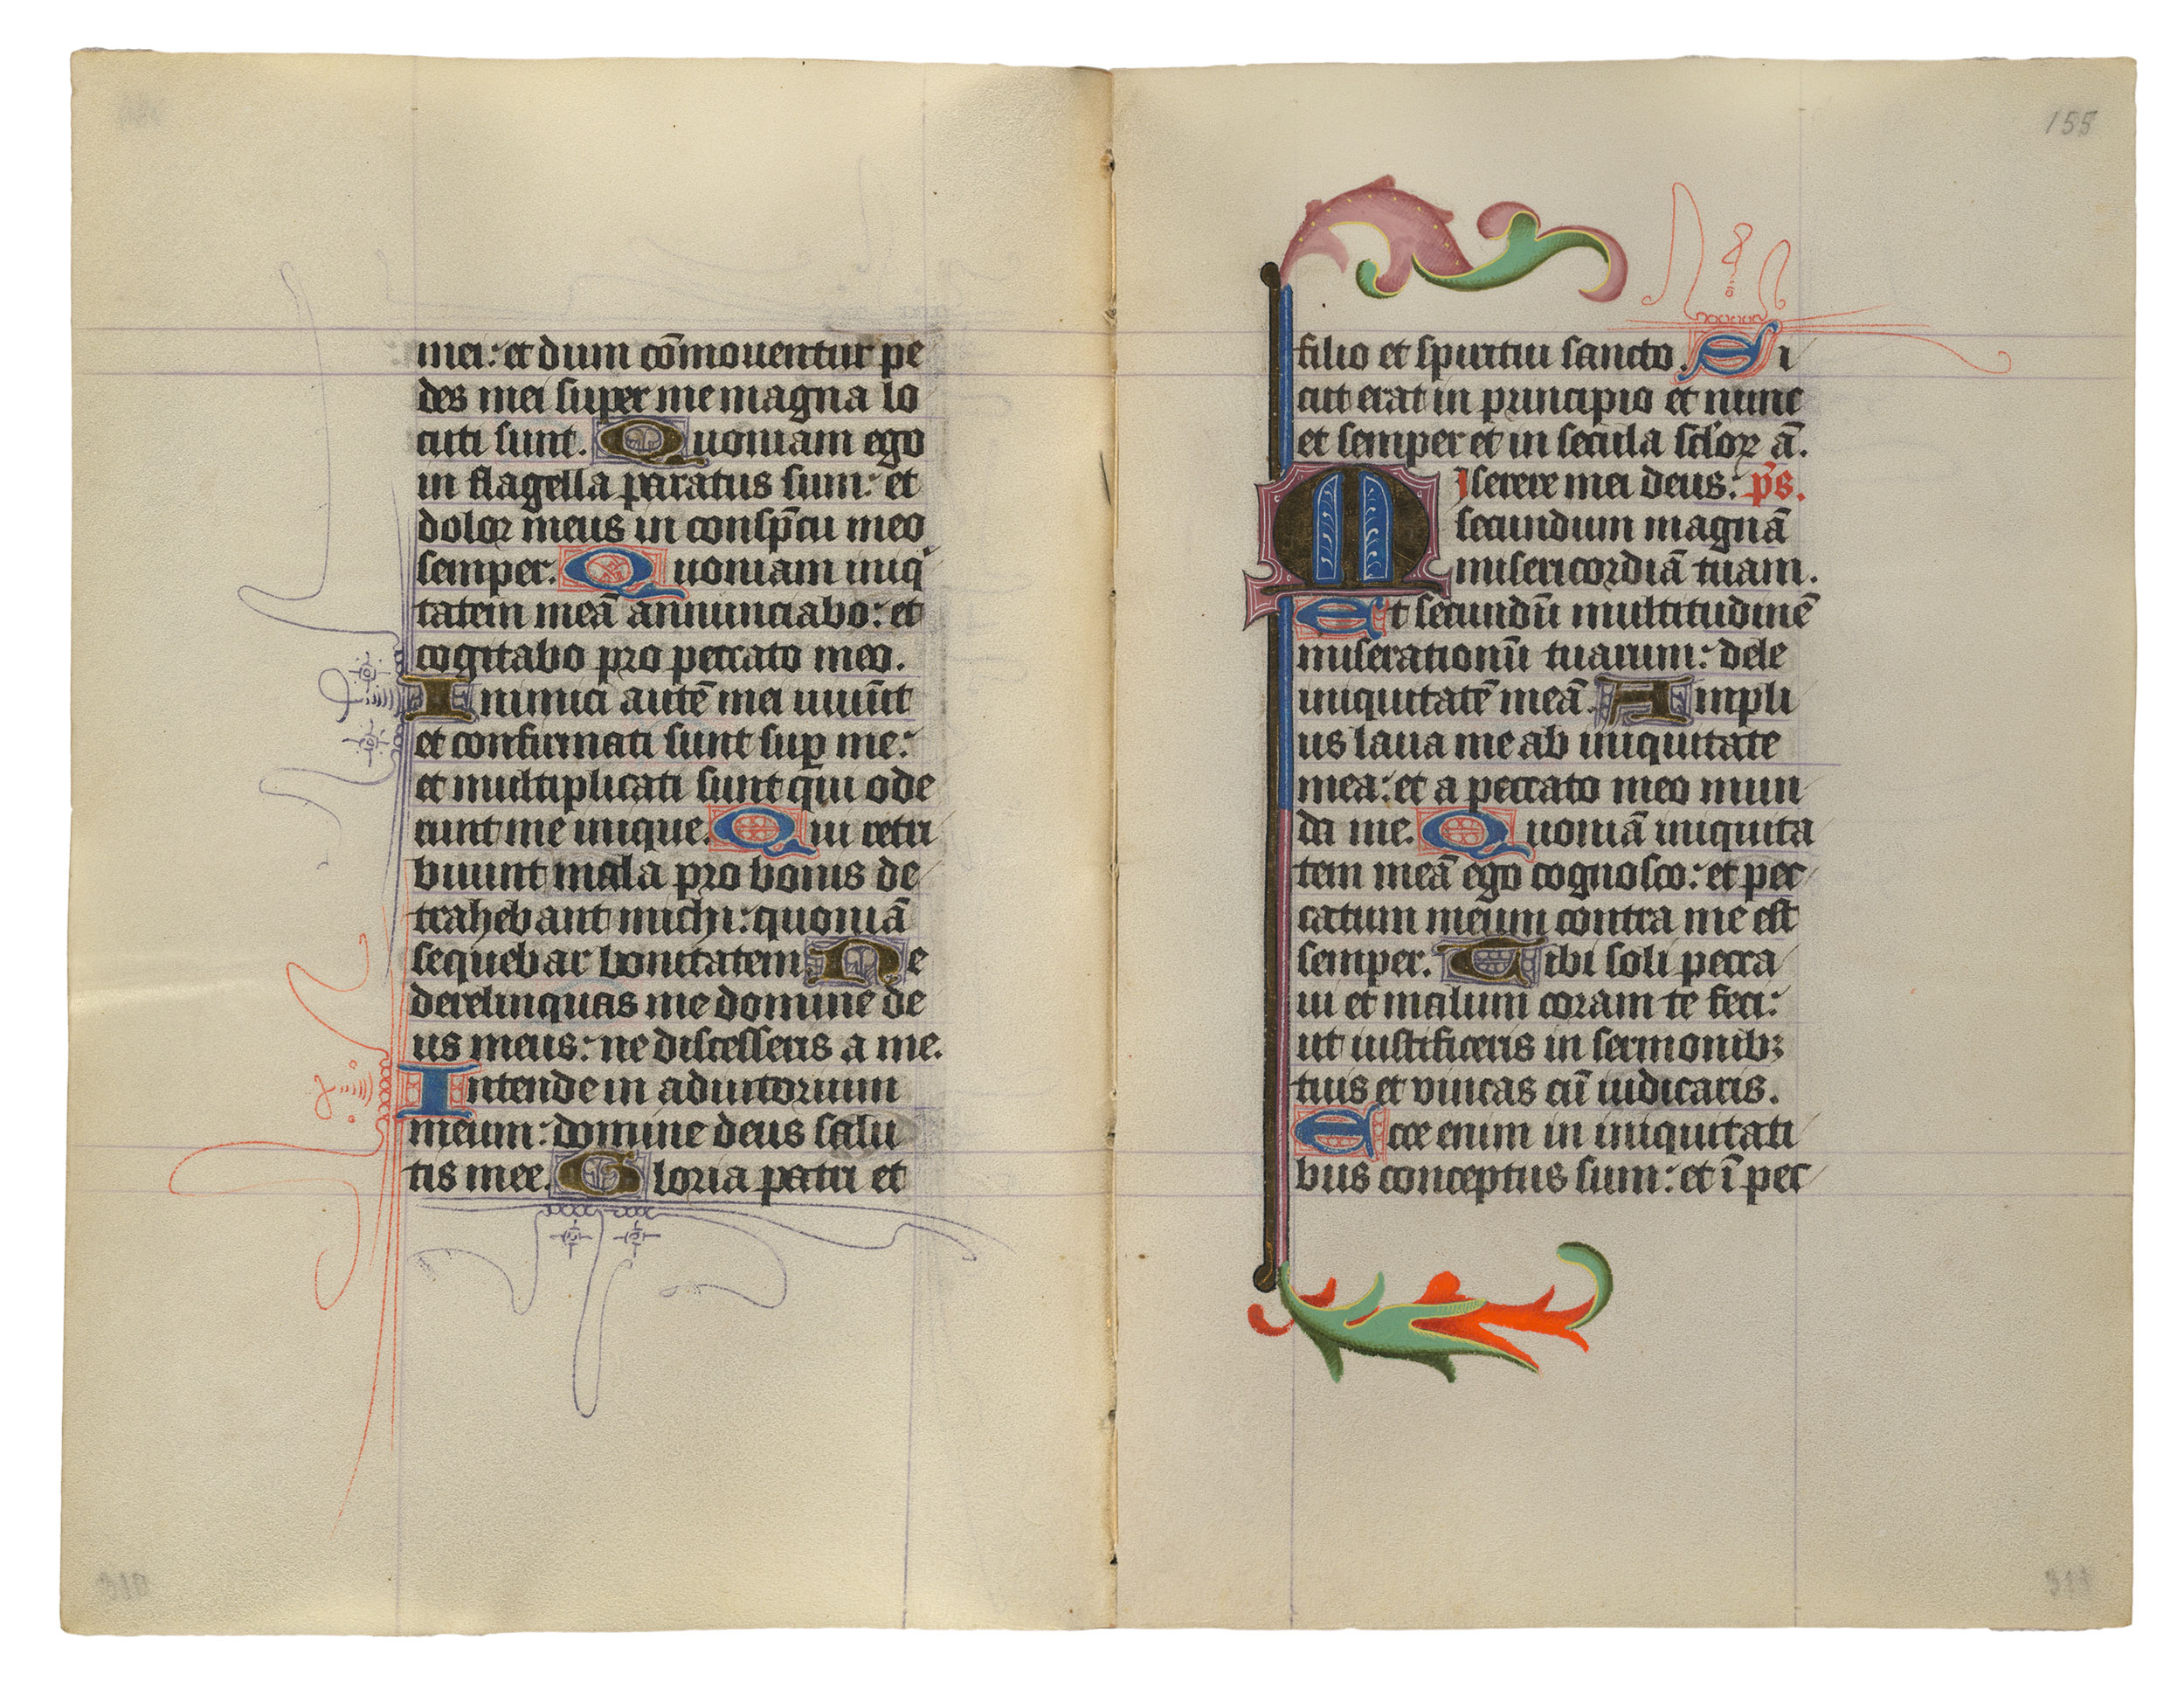 mei: et dum cōmouentur pe
des mei super me magna lo
cuti sunt. Quoniam ego
in flagella paratus sum: et
dolor meus in consp̄cu meo
semper. Quoniam iniq
tatem meā annunciabo: et
cogitabo pro peccato meo.
Inimici autē mei uiuūt
et confirmati sunt suꝑ me:
et multiplicati sunt qui ode
runt me inique. Qui retri
buunt mala pro bonis de
trahebant michi: quoniā
sequebar bonitatem Ne
derelinquas me domine de
us meus: ne discesseris a me.
Intende in adiutorium
meum: domine deus salu
tis mee. Gloria patri et
155
filio et spiritui sancto. Si
cut erat in principio et nunc
et semper et in secula sc̄loꝝ ā.
Miserere mei deus: p̄s.
secundum magnā
misericordiā tuam.
Et secundū multitudinē
miserationū tuarum: dele
iniquitatē meā. Ampli
us laua me ab iniquitate
mea: et a peccato meo mun
da me. Quoniā iniquita
tem meā ego cognosco: et pec
catum meum contra me est
semper. Tibi soli pecca
ui et malum coram te feci:
ut iustificeris in sermonibꝫ
tuis et vincas cū iudicaris.
Ecce enim in iniquitati
bus conceptus sum: et ī pec